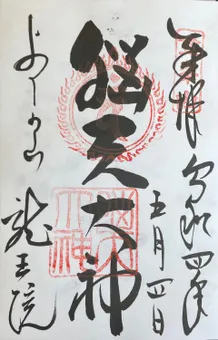 奉拝 令和四年
五月四日
脳天大神
よしの山 龍王院